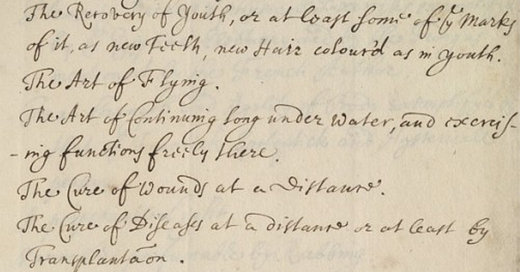 The Recovery of Youth, or at least some of yͤ Marks
of it, as new Teeth, new Hair colour'd as in youth.
The Art of Flying.
The Art of Continuing long under water, and exercis-
-ing functions freely there.
The Cure of Wounds at a Distance.
The Cure of Diseases at a distance or at least by
Transplantaon.